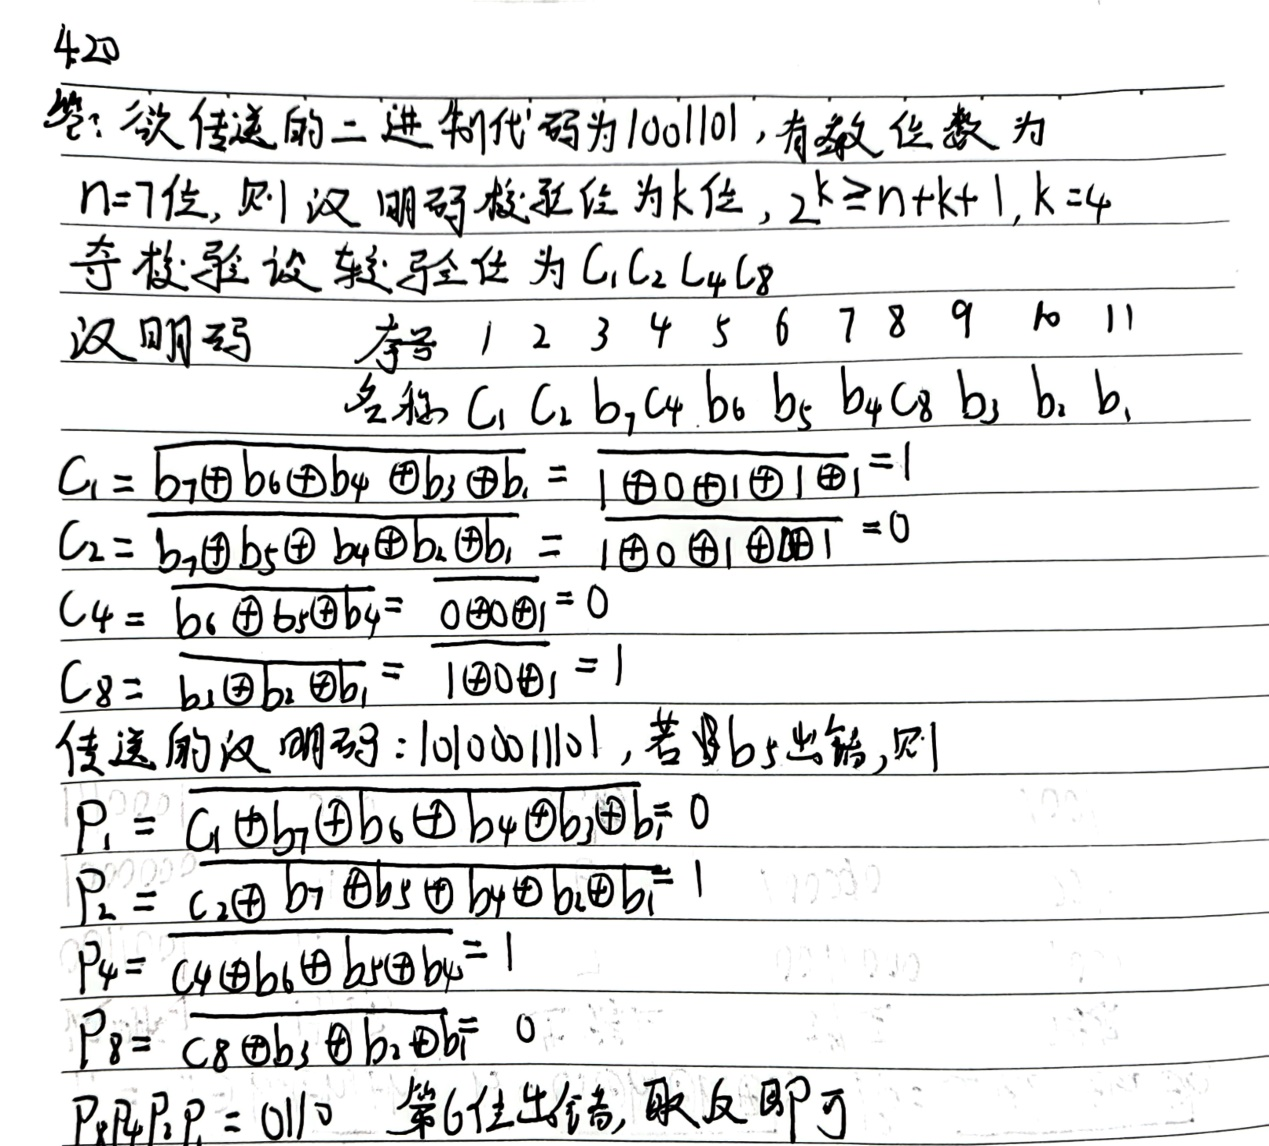 4.20
答：欲传送的二进制代码为1001101，有效位数为
n=7位，则汉明码校验位为k位，2^k≥n+k+1，k=4
夸校验设较验位为C₁C₂C₄C₈
汉明码 序号 1 2 3 4 5 6 7 8 9 10 11
名称 C₁ C₂ b₇ C₄ b₆ b₅ b₄ C₈ b₃ b₂ b₁
C₁ = \overline{b₇⊕b₆⊕b₄⊕b₃⊕b₁} = \overline{1⊕0⊕1⊕1⊕1} = 1
C₂ = \overline{b₇⊕b₅⊕b₄⊕b₂⊕b₁} = \overline{1⊕0⊕1⊕0⊕1} = 0
C₄ = \overline{b₆⊕b₅⊕b₄} = \overline{0⊕0⊕1} = 0
C₈ = \overline{b₃⊕b₂⊕b₁} = \overline{1⊕0⊕1} = 1
传送的汉明码：10100011101，若b₅出错，则
P₁ = \overline{C₁⊕b₇⊕b₆⊕b₄⊕b₃⊕b₁} = 0
P₂ = \overline{C₂⊕b₇⊕b₅⊕b₄⊕b₂⊕b₁} = 1
P₄ = \overline{C₄⊕b₆⊕b₅⊕b₄} = 1
P₈ = \overline{C₈⊕b₃⊕b₂⊕b₁} = 0
P₈P₄P₂P₁ = 0110 第6位出错，取反即可